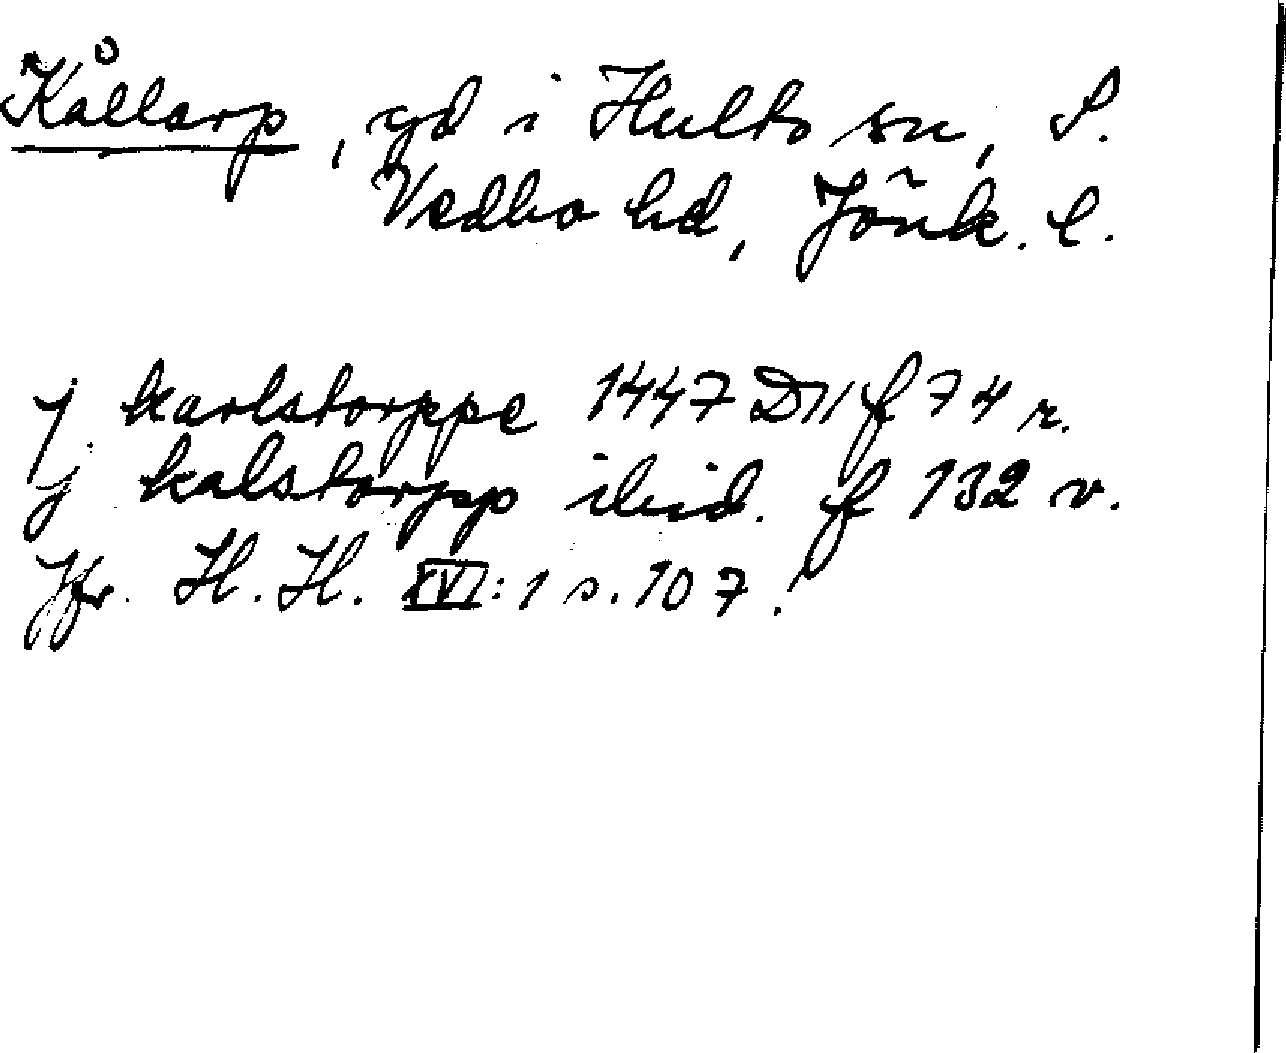 Kållarp, gd i Hults sn, S.
Vedbo hd, Jönk. l.
j karlstorppe 1447 D11 f 74 r.
j kalstorpp ibid. f 132 v.
Jfr. H.H. XVI:1 s. 107.